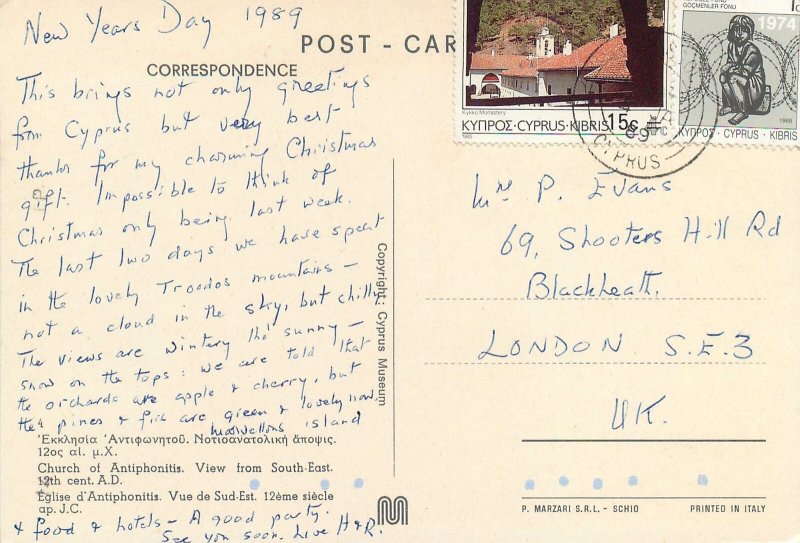 New Years Day 1989
POST - CAR
CORRESPONDENCE
This brings not only greetings
from Cyprus but very best
thanks for my charming Christmas
gift. Impossible to think of
Christmas only being last week.
The last two days we have spent
in the lovely Troodos mountains -
not a cloud in the sky, but chilly.
The views are wintery tho' sunny -
snow on the tops: we are told that
the orchards are apple & cherry, but
the pines & firs are green & lovely now.
Marvellous island
& food & hotels - A good party.
See you soon. Love H&R.
Ἐκκλησία Ἀντιφωνητοῦ. Νοτιοανατολική ἄποψις.
12ος αἰ. μ.Χ.
Church of Antiphonitis. View from South-East.
12th cent. A.D.
Eglise d'Antiphonitis. Vue de Sud-Est. 12ème siècle
ap. J.C.
Copyright: Cyprus Museum
Kykko Monastery
15c
ΚΥΠΡΟΣ·CYPRUS·KIBRIS
1985
GÖÇMENLER FONU
1c
1974
1988
ΚΥΠΡΟΣ·CYPRUS·KIBRIS
89
CYPRUS
P. Evans
69, Shooters Hill Rd
Blackheath.
LONDON S.E.3
UK.
P. MARZARI S.R.L. - SCHIO
PRINTED IN ITALY